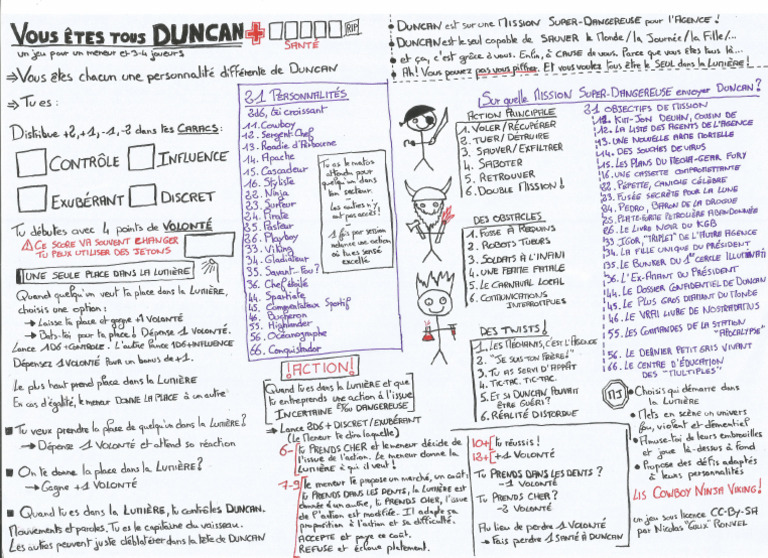 VOUS ÊTES TOUS DUNCAN
RIP
SANTÉ
un jeu pour un meneur et 3-4 joueurs
⇒ Vous êtes chacun une personnalité différente de DUNCAN
⇒ Tu es :
Distribue +2, +1, -1, -2 dans tes CARACS:
CONTRÔLE
INFLUENCE
EXUBÉRANT
DISCRET
Tu débutes avec 4 points de VOLONTÉ
⚠ CE SCORE VA SOUVENT CHANGER
TU PEUX UTILISER DES JETONS
UNE SEULE PLACE DANS LA LUMIÈRE
Quand quelqu'un veut ta place dans la LUMIÈRE,
choisis une option :
→ Laisse ta place et gagne +1 VOLONTÉ
→ Bats-toi pour ta place ! Dépense 1 VOLONTÉ.
Lance 1D6+CONTROLE. L'autre lance 1D6+INFLUENCE
Dépensez 1 VOLONTÉ pour un bonus de +1.
Le plus haut prend place dans la LUMIÈRE
En cas d'égalité, le meneur DONNE LA PLACE à un autre
■ Tu veux prendre la place de quelqu'un dans la LUMIÈRE ?
→ Dépense 1 VOLONTÉ et attend sa réaction
■ On te donne la place dans la LUMIÈRE ?
→ Gagne +1 VOLONTÉ
■ Quand tu es dans la LUMIÈRE, tu contrôles DUNCAN.
Mouvements et paroles, Tu es le capitaine du vaisseau.
Les autres peuvent juste déblatérer dans la tête de DUNCAN
21 PERSONNALITÉS
2d6, tri croissant
11. Cowboy
12. Sergent Chef
13. Roadie d'Airbourne
14. Apache
15. Cascadeur
16. Styliste
22. Ninja
23. Surfeur
24. Pirate
25. Pasteur
26. Playboy
33. Viking
34. Gladiateur
35. Savant-Fou ?
36. Chef étoilé
44. Spartiate
45. Commentateur Sportif
46. Bucheron
55. Highlander
56. Océanographe
66. Conquistador
Tu as le matos
attendu pour
quelqu'un dans
ton secteur.
Les autres n'y
ont pas accès !
1 fois par session
relance une action
où tu es sensé
excellé
ACTION !
Quand tu es dans la LUMIÈRE et que
tu entreprends une action à l'issue
INCERTAINE et/ou DANGEREUSE
→ Lance 2D6 + DISCRET/EXUBÉRANT
(Le Meneur te dira laquelle)
6- tu PRENDS CHER et le meneur décide de
l'issue de l'action. Le meneur donne la
LUMIÈRE à qui il veut !
7-9 le meneur te propose un marché, un coût:
tu PRENDS DANS LES DENTS, la LUMIÈRE est
donnée à un autre, tu PRENDS CHER, l'issue
de l'action est modifiée. Il adapte sa
proposition à l'action et sa difficulté.
ACCEPTE et paye ce coût.
REFUSE et échoue platement.
10+ tu réussis !
12+ +1 VOLONTÉ
TU PRENDS DANS LES DENTS ?
-1 VOLONTÉ
TU PRENDS CHER ?
-2 VOLONTÉ
Au lieu de perdre 1 VOLONTÉ
→ Fais perdre 1 SANTÉ à DUNCAN
• DUNCAN est sur une MISSION SUPER-DANGEREUSE pour l'AGENCE !
• DUNCAN est le seul capable de SAUVER le Monde / la Journée / la Fille/...
• et ça, c'est grâce à vous. Enfin, à CAUSE de vous. Parce que vous êtes tous là...
• Ah ! Vous pouvez pas vous piffrer. Et vous voulez tous être le SEUL dans la LUMIÈRE !
Sur quelle MISSION SUPER-DANGEREUSE envoyer DUNCAN ?
ACTION PRINCIPALE
1. VOLER / RÉCUPÉRER
2. TUER / DÉTRUIRE
3. SAUVER / EXFILTRER
4. SABOTER
5. RETROUVER
6. DOUBLE MISSION !
DES OBSTACLES
1. FOSSE À REQUINS
2. ROBOTS TUEURS
3. SOLDATS À L'INFINI
4. UNE FEMME FATALE
5. LE CARNAVAL LOCAL
6. COMMUNICATIONS
INTERROMPUES
DES TWISTS !
1. LES MÉCHANTS, C'EST L'AGENCE
2. "JE SUIS TON FRÈRE !"
3. TU AS SERVI D'APPÂT
4. TIC-TAC, TIC-TAC.
5. ET SI DUNCAN POUVAIT
ÊTRE GUÉRI ?
6. RÉALITÉ DISTORDUE
21 OBJECTIFS DE MISSION
11. KIM-JON DEUHN, COUSIN DE
12. LA LISTE DES AGENTS DE L'AGENCE
13. UNE NOUVELLE ARME MORTELLE
14. DES SOUCHES DE VIRUS
15. LES PLANS DU MECHA-GEAR FURY
16. UNE CASSETTE COMPROMETTANTE
22. PÉPETTE, CANICHE CÉLÈBRE
23. FUSÉE SECRÈTE POUR LA LUNE
24. PEDRO, BARON DE LA DROGUE
25. PLATE-FORME PÉTROLIÈRE ABANDONNÉE
26. LE LIVRE NOIR DU KGB
33. IGOR, "TRIPLET" DE L'AUTRE AGENCE
34. LA FILLE UNIQUE DU PRÉSIDENT
35. LE BUNKER DU 1er CERCLE ILLUMINATI
36. L'EX-AMANT DU PRÉSIDENT
44. LE DOSSIER CONFIDENTIEL DE DUNCAN
45. LE PLUS GROS DIAMANT DU MONDE
46. LE VRAI LIVRE DE NOSTRADAMUS
55. LES COMMANDES DE LA STATION
"APOCALYPSE"
56. LE DERNIER PETIT GRIS VIVANT
66. LE CENTRE D'ÉDUCATION
DES "MULTIPLES"
MJ
• Choisis qui démarre dans
la LUMIÈRE
• Mets en scène un univers
fou, violent et démentiel
• Amuse-toi de leurs embrouilles
et joue là-dessus à fond
• Propose des défis adaptés
à leurs personnalités
LIS COWBOY NINJA VIKING !
un jeu sous licence CC-BY-SA
par Nicolas "Gaux" RONVEL